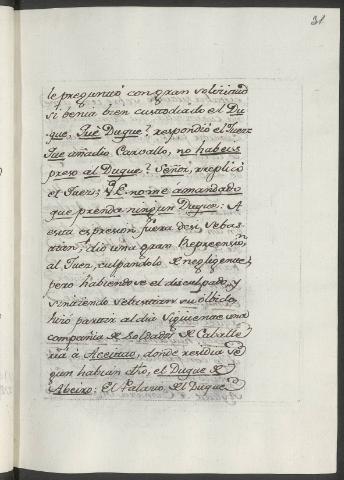 31
le preguntó con gran solicitud
si benia bien custodiado el Du-
que, Què Duque? respondió el Juez:
Que añadio Carvallo, no habeis
preso al Duque? Señor, replicó
el Juez; V.E. no me a mandado
que prenda ningun Duque: A
esta espresion fuera de si Sebas-
tian, dió una gran Reprension
al Juez, culpandolo de negligente,
pero habiendose el disculpado, y
sintiendo Sebastian su olbido,
hizo partir al dia siguiente una
compañia de soldados de Caballe-
ria à Aceitao, donde residia se-
gun habian dho, el Duque de
Abeiro: El Palacio del Duque